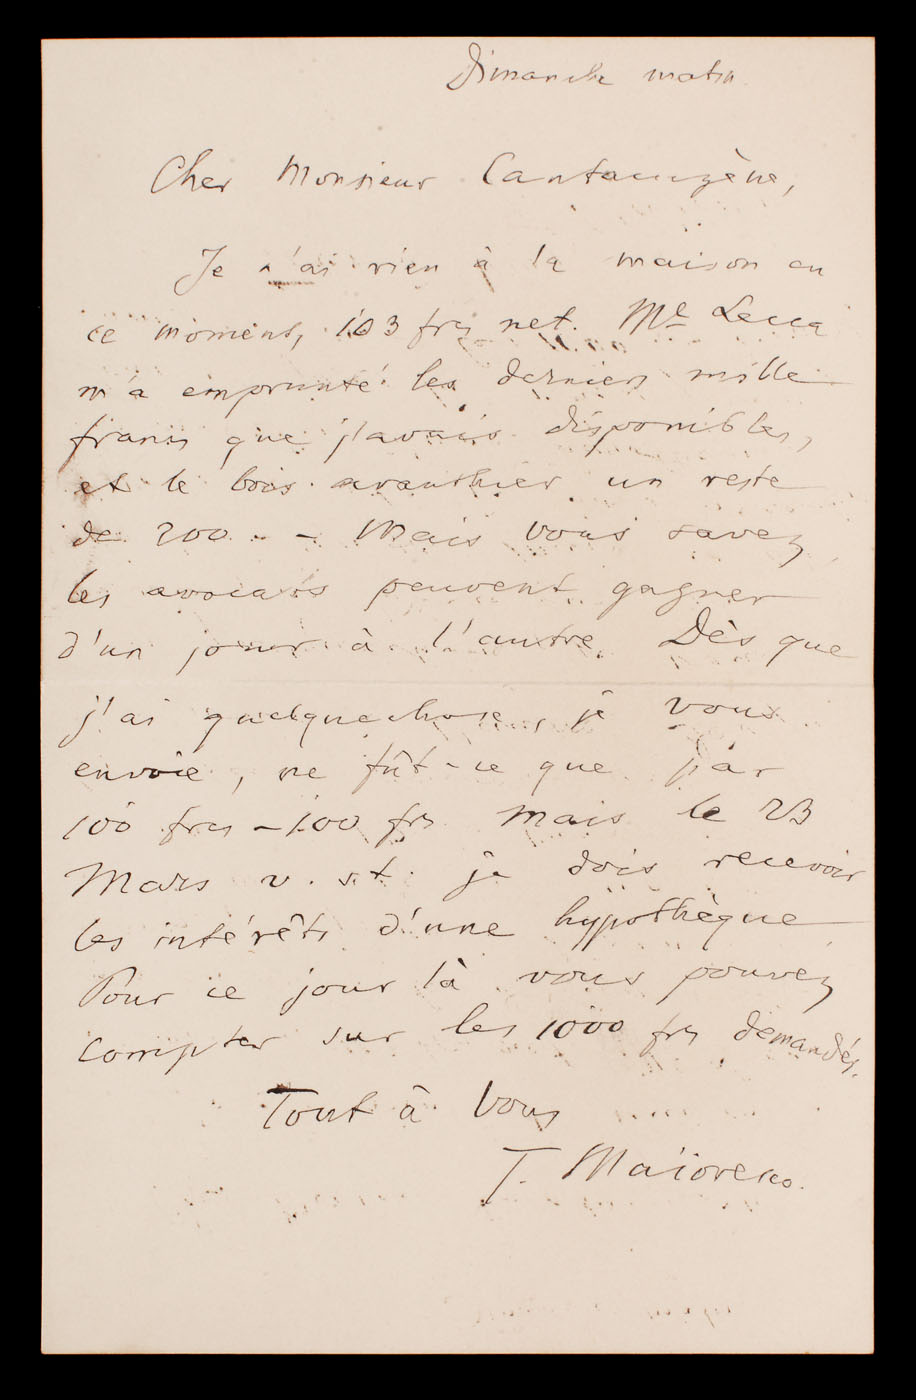 Dimanche matin.
Cher Monsieur Cantacuzène,
Je n'ai rien à la maison en
ce moment, 103 frs net. Me Lecca
m'a emprunté les derniers mille
francs que j'avais disponibles,
et le bois avanthier un reste
de 200. - Mais vous savez,
les avocats peuvent gagner
d'un jour à l'autre. Dès que
j'ai quelquechose, je vous
envoie, ne fût-ce que par
100 frs - 100 frs Mais le 23
Mars v. st. je dois recevoir
les intérêts d'une hypothèque
Pour ce jour là vous pouvez
compter sur les 1000 frs demandés.
Tout à Vous
T. Maïoresco.